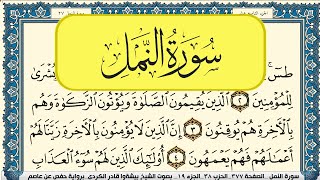 سُورَةُ النَّمْلِ
طسٓ
وَبُشْرَىٰ
لِلْمُؤْمِنِينَ ٢ الَّذِينَ يُقِيمُونَ الصَّلَوٰةَ وَيُؤْتُونَ الزَّكَوٰةَ وَهُم
بِالْأَخِرَةِ هُمْ يُوقِنُونَ ٣ إِنَّ الَّذِينَ لَا يُؤْمِنُونَ بِالْأَخِرَةِ زَيَّنَّا لَهُمْ
أَعْمَٰلَهُمْ فَهُمْ يَعْمَهُونَ ٤ أُوْلَٰٓئِكَ الَّذِينَ لَهُمْ سُوٓءُ الْعَذَابِ
سورة النمل . الصفحة ٣٧٧ . الحزب ٣٨ . الجزء ١٩ . بصوت الشيخ بيشةوا قادر الكردي . برواية حفص عن عاصم